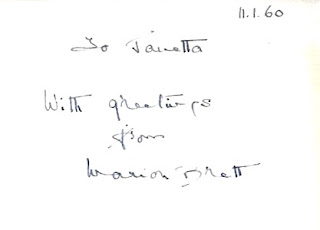 11.1.60
To Janetta
With greetings
from
Marion Bratt